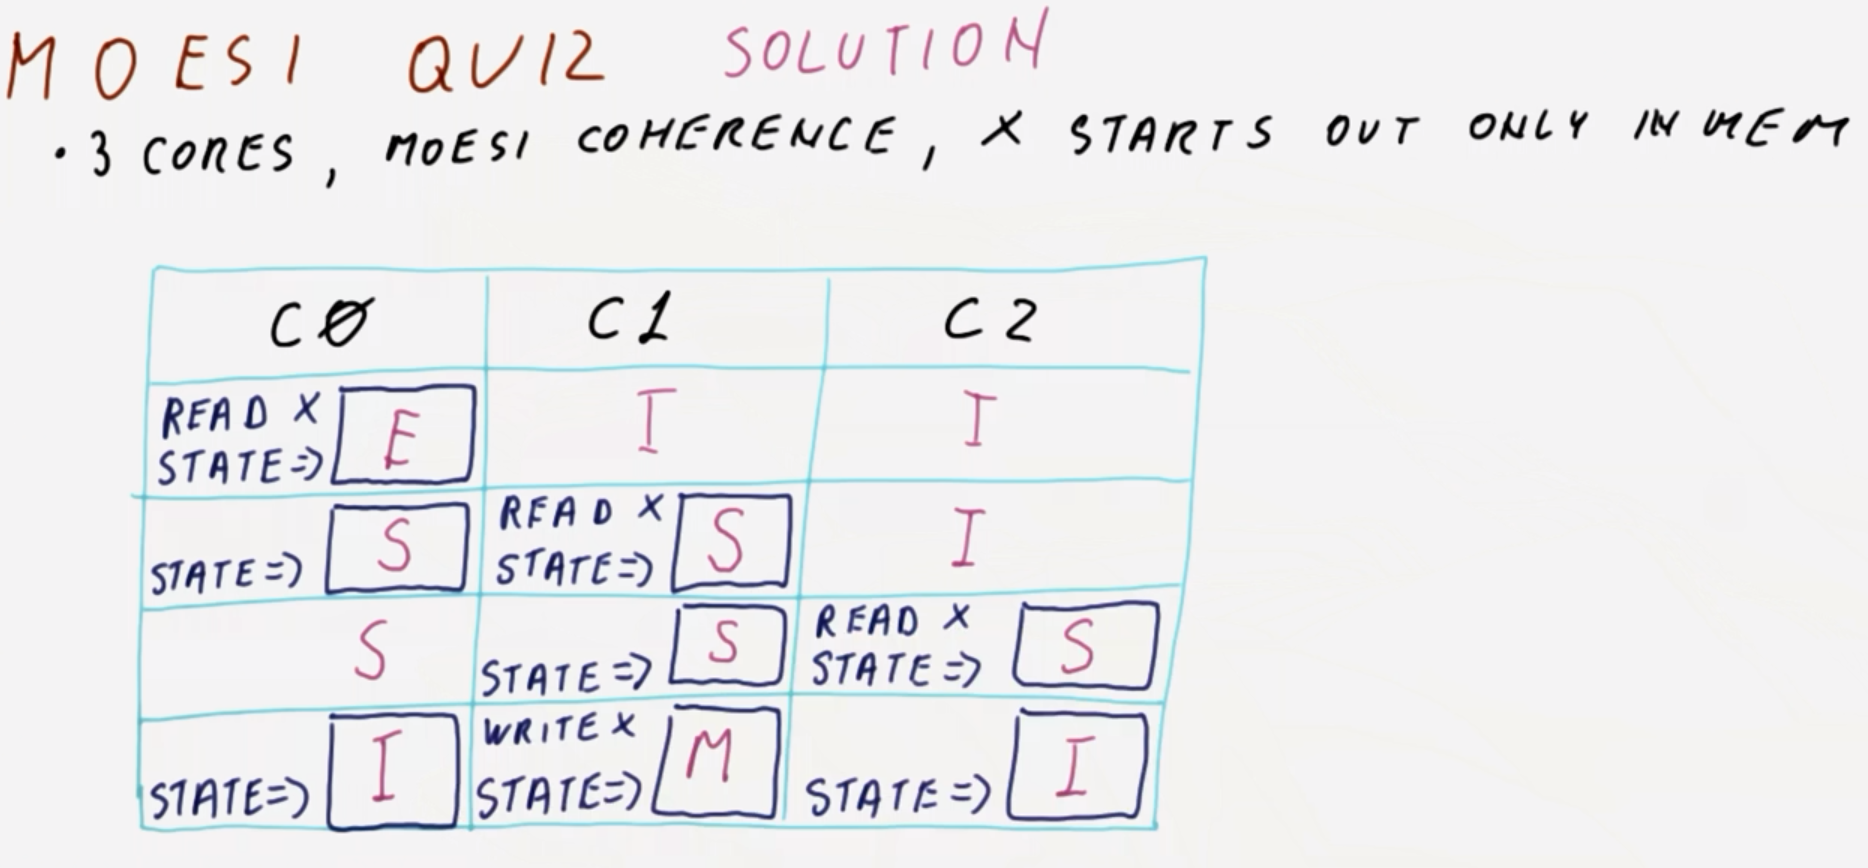 MOESI QUIZ SOLUTION
• 3 CORES, MOESI COHERENCE, X STARTS OUT ONLY IN MEM
C0 C1 C2
READ X
STATE => E I I
READ X
STATE => S STATE => S I
READ X
S STATE => S STATE => S
WRITE X
STATE => I STATE => M STATE => I